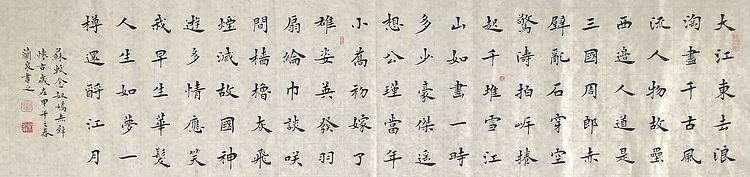 大江東去浪
淘盡千古風
流人物故壘
西邊人道是
三國周郎赤
壁亂石穿空
驚濤拍岸捲
起千堆雪江
山如畫一時
多少豪傑遙
想公瑾當年
小喬初嫁了
雄姿英發羽
扇綸巾談咲
間檣櫓灰飛
煙滅故國神
遊多情應笑
我早生華髮
人生如夢一
樽還酹江月
蘇軾念奴嬌赤壁
懷古歲在甲午之春
蘭泉書之